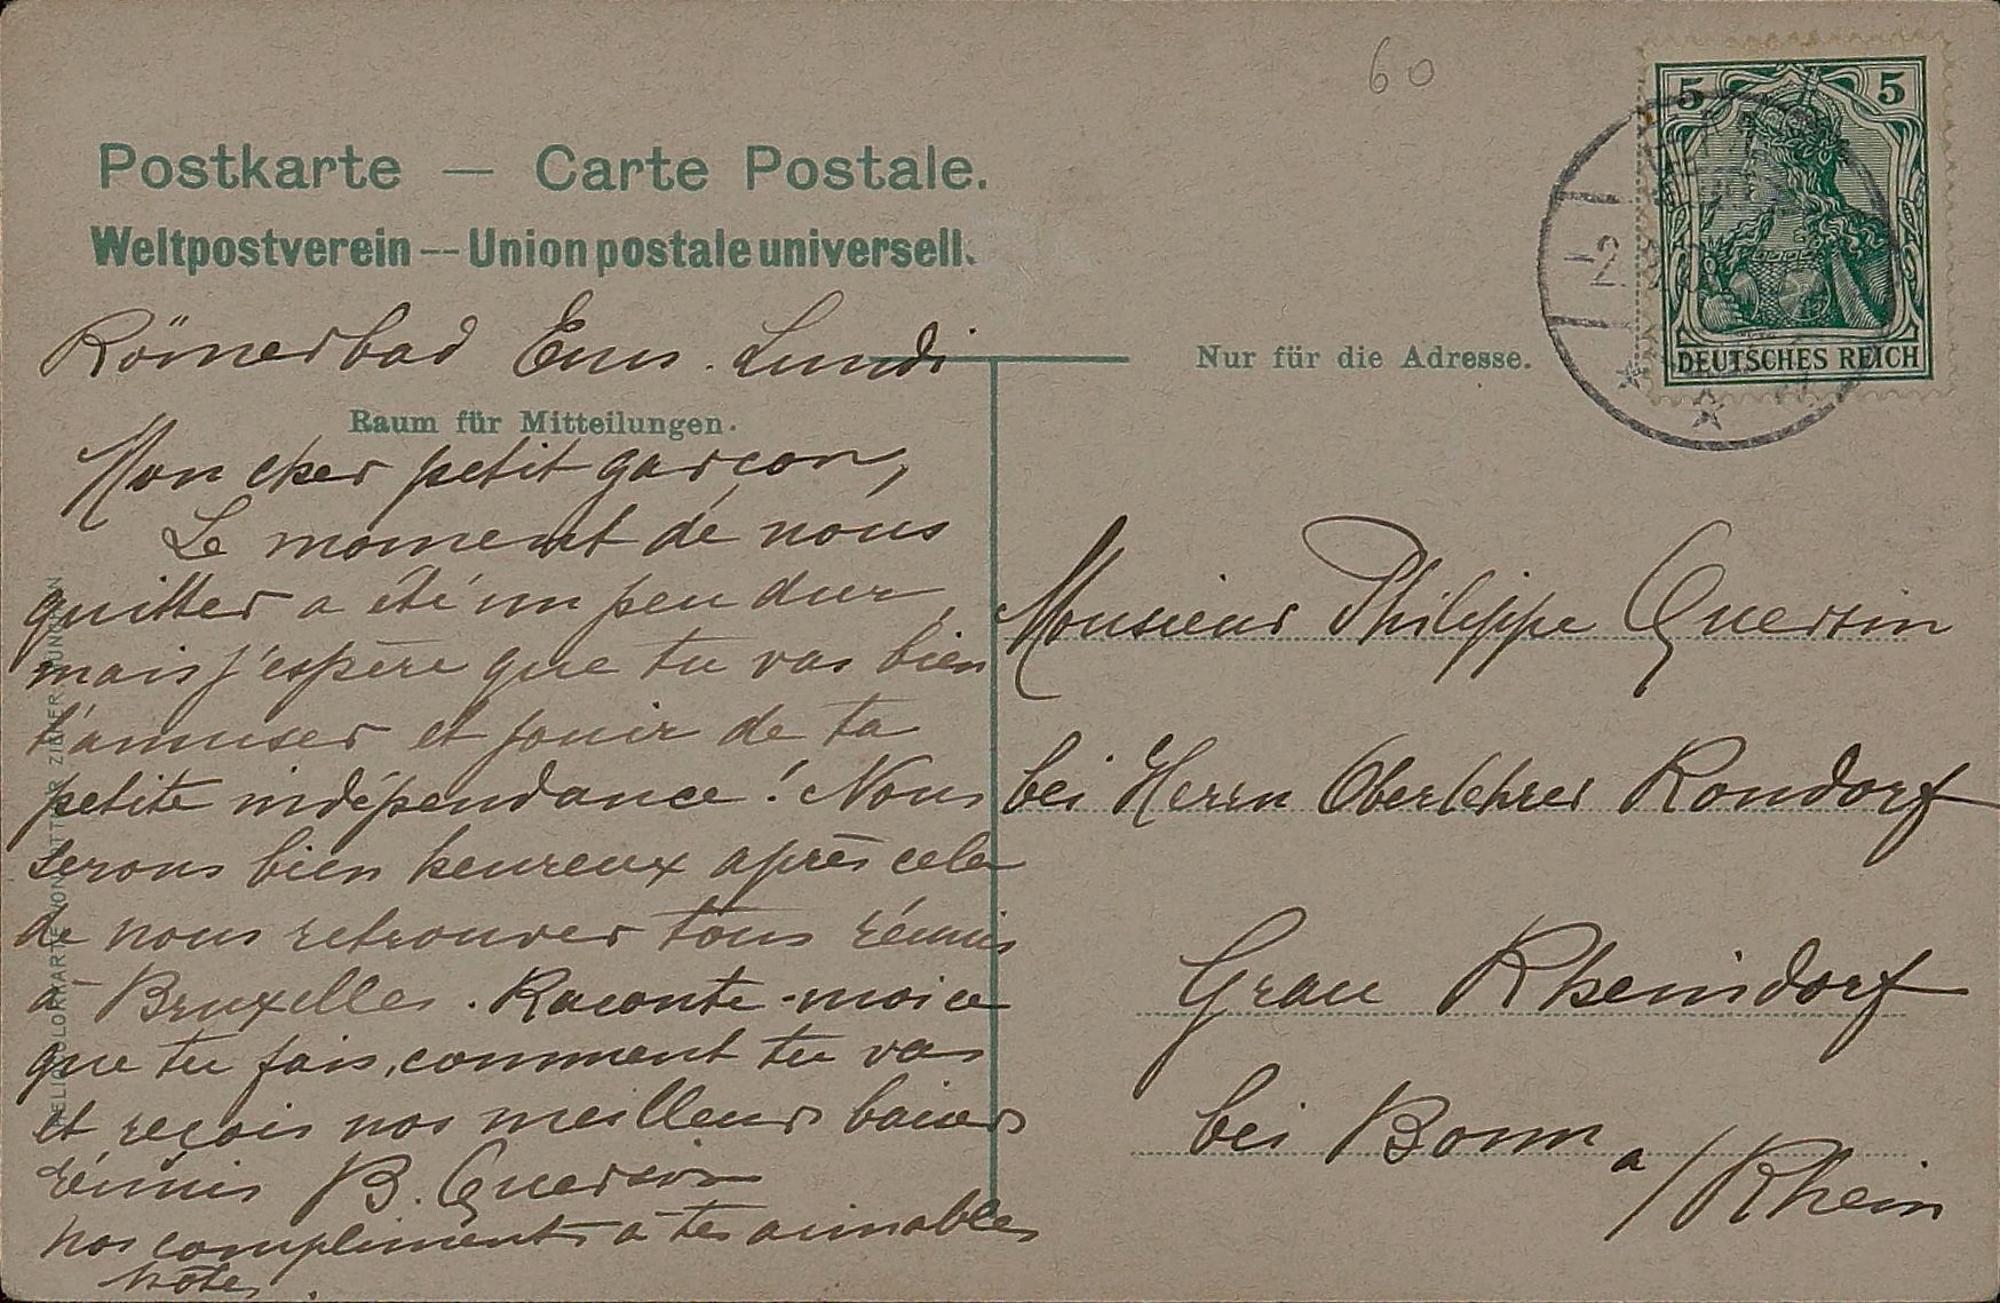 60
5 5
DEUTSCHES REICH
Postkarte — Carte Postale.
Weltpostverein — Union postale universell.
Nur für die Adresse.
Raum für Mitteilungen.
Römerbad Ems. Lundi
Mon cher petit garçon,
Le moment de nous
quitter a été un peu dur,
mais j'espère que tu vas bien
t'amuser et jouir de ta
petite indépendance! Nous
serons bien heureux après cela
de nous retrouver tous réunis
à Bruxelles. Raconte-moi ce
que tu fais, comment tu vas
et reçois nos meilleurs baisers
réunis B. Querson
nos compliments à tes aimables
hôtes.
Monsieur Philippe Quersin
bei Herrn Oberlehrer Rondorf
Grau Rheindorf
bei Bonn a/Rhein